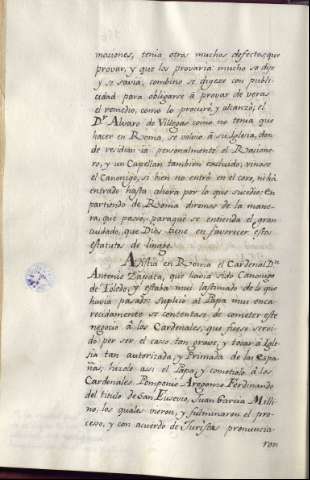 maciones, tenia otros muchos defectos que
provar, y que los provaria: mucho se dixo
y se savia, combino se digese con publi-
cidad para obligarse â provar de veras
el remedio, como lo procuró, y alcanzó; el
D.r Alvaro de Villegas como no tenia que
hacer en Roma, se volvio â su Iglesia, don
de residian ia personalmente el Racione-
ro, y un Capellan tambien excluido; vinose
el Canonigo, si bien no entró en el coro, ni há
entrado hasta ahora por lo que sucedio: En
partiendo de Roma diremos de la mane-
ra, que pasó, paraque se entienda el gran
cuidado, que Dios tiene en favorecer estos
estatutos de linage.
Asistia en Roma el Cardenal D.n
Antonio Zapata, que havia sido Canonigo
de Toledo, y estaba mui lastimado de lo que
havia pasado; suplicó al Papa mui enca-
recidamente se contentase de cometer este
negocio â los Cardenales, que fuese servi-
do per ser el caso tan grave, y tocar â Igle
sia tan autorizada, y Primada de las Espa-
ñas; hizolo asi el Papa, y cometiolo â los
Cardenales Pomponio Aregonzo Ferdinando
del titulo de San Eusevio, Juan Garcia Milli-
no, los quales vieron, y fulminaron el pro-
ceso, y con acuerdo de Juristas pronuncia-
ron